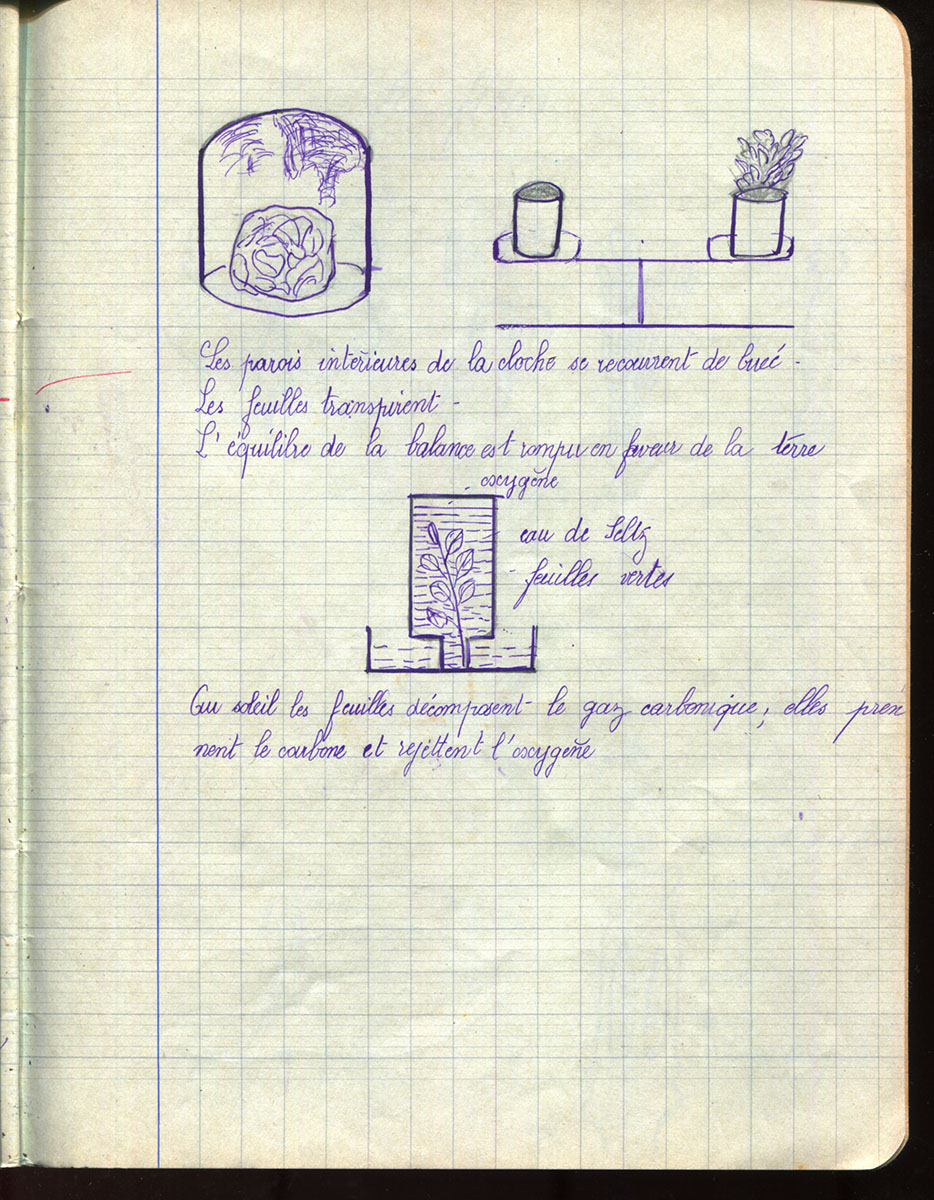 Les parois intérieures de la cloche se recouvrent de bueé -
Les feuilles transpirent -
L'équilibre de la balance est rompu en faveur de la terre
oxygène
eau de Seltz
feuilles vertes
Au soleil les feuilles décomposent le gaz carbonique, elles pren
nent le carbone et rejettent l'oxygène